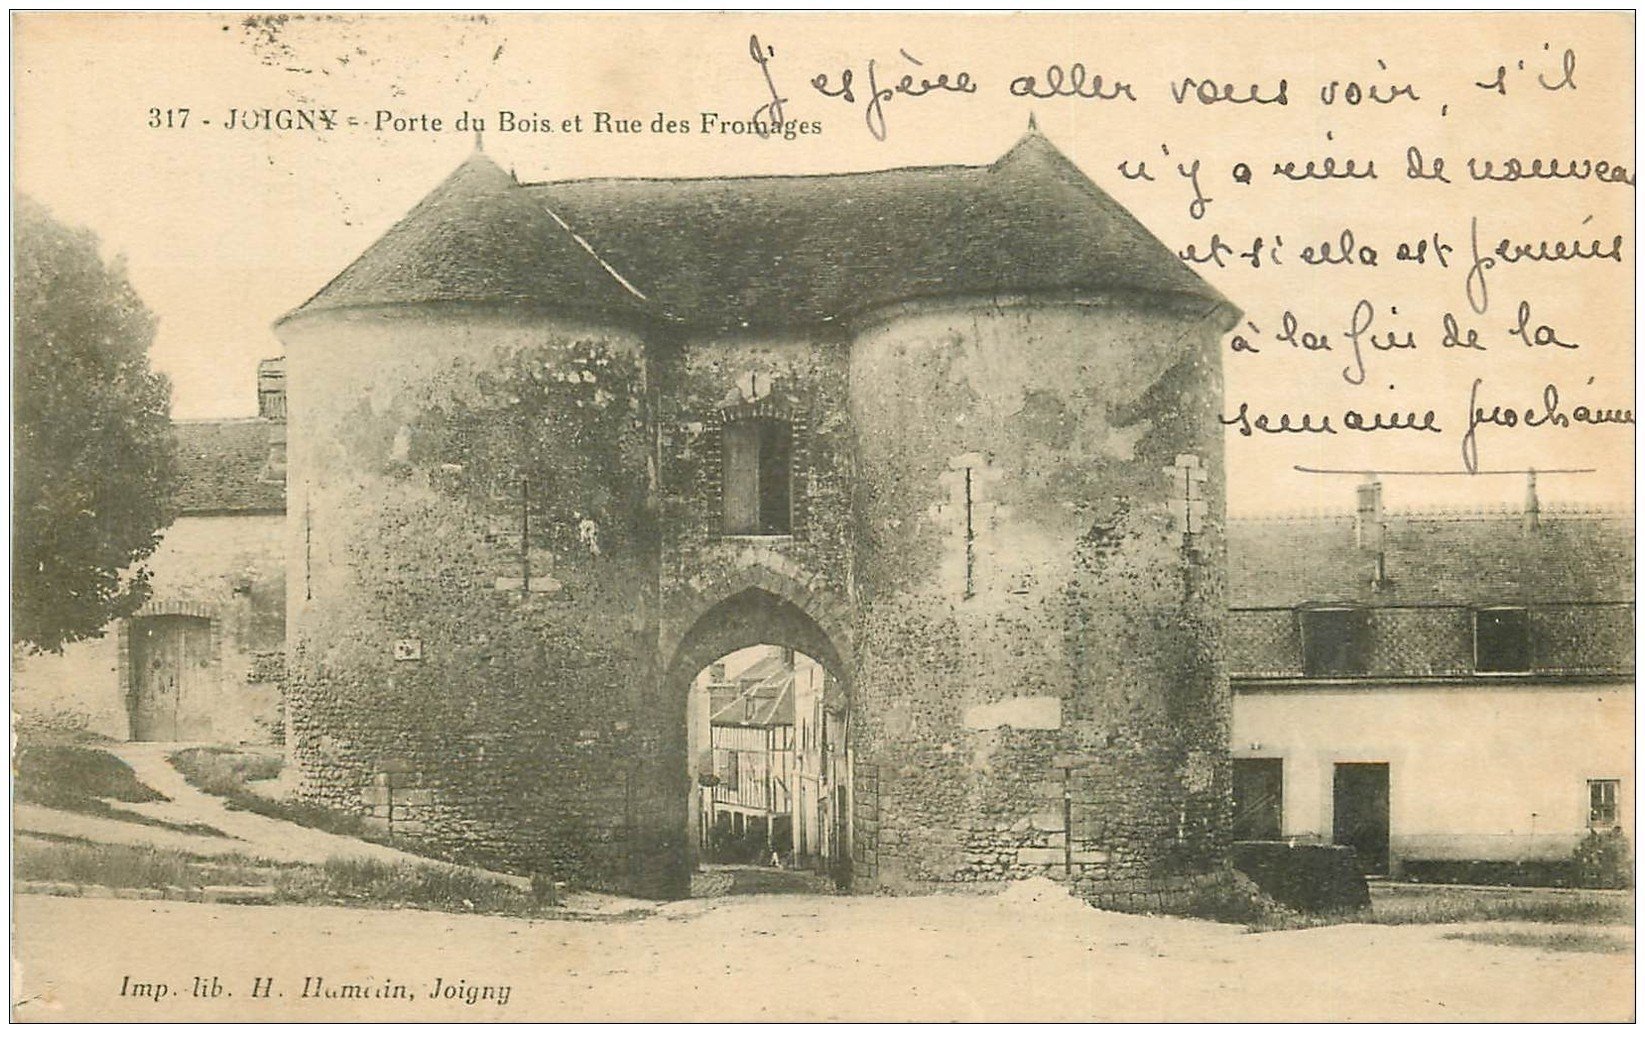 317 - JOIGNY - Porte du Bois et Rue des Fromages
J'espère aller vous voir, s'il
n'y a rien de nouveau
et si cela est permis
à la fin de la
semaine prochaine
Imp. lib. H. Hamelin, Joigny